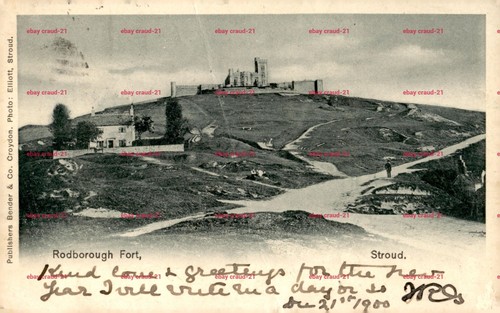 Publishers Bender & Co. Croydon. Photo: Elliott, Stroud.
ebay craud-21 ebay craud-21 ebay craud-21 ebay craud-21 ebay craud-21
ebay craud-21 ebay craud-21 ebay craud-21 ebay craud-21 ebay craud-21
ebay craud-21 ebay craud-21 ebay craud-21 ebay craud-21 ebay craud-21
ebay craud-21 ebay craud-21 ebay craud-21 ebay craud-21 ebay craud-21
Rodborough Fort, Stroud.
ebay craud-21 ebay craud-21 ebay craud-21 ebay craud-21 ebay craud-21
Kind & greetings for the New
Year I will write in a day or so
Dec 21st 1900